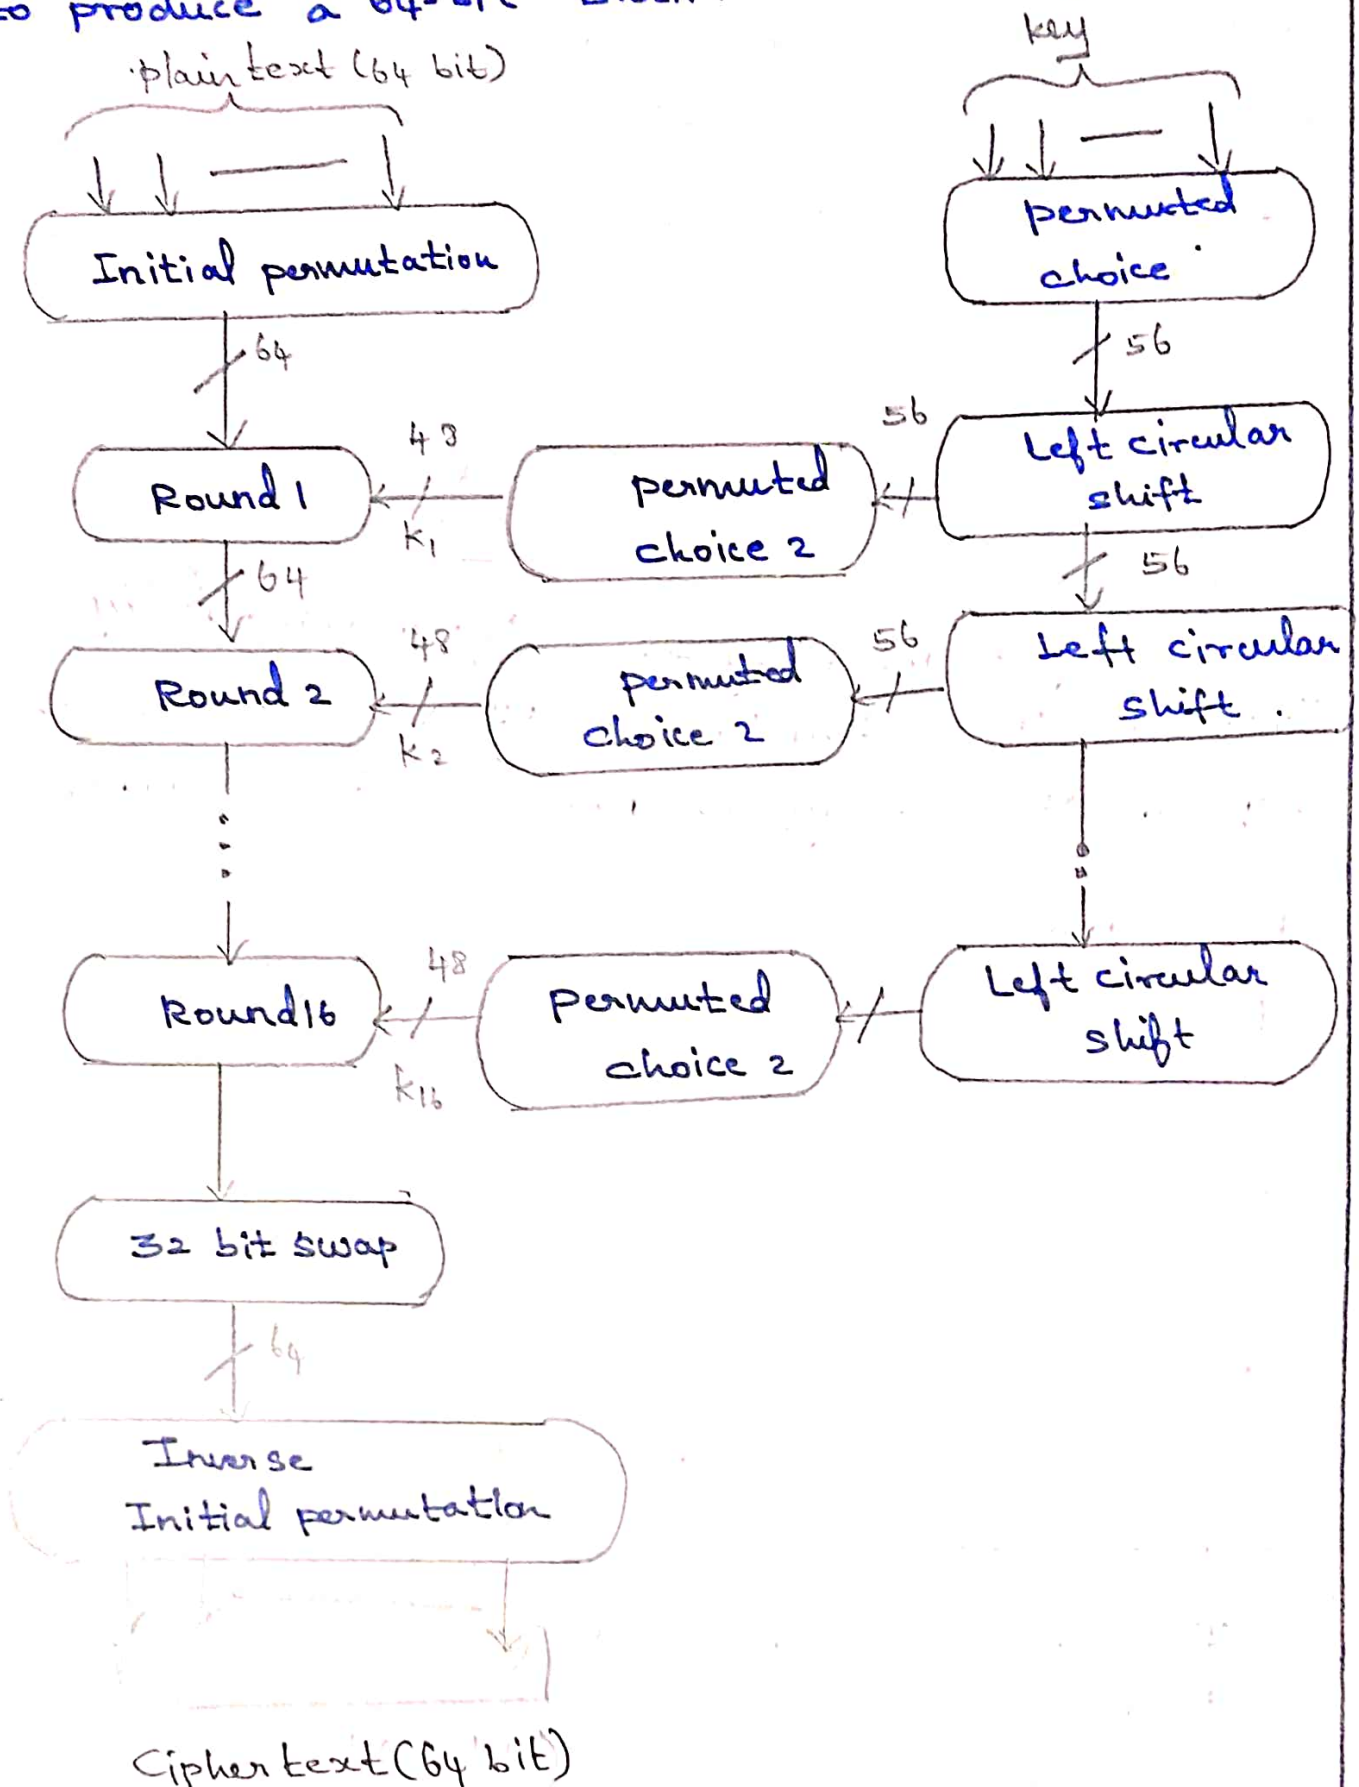 to produce a 64-bit
plain text (64 bit)
key
Initial permutation
permuted
choice
64
56
Round 1
48
K1
permuted
choice 2
56
Left circular
shift
64
56
Round 2
48
K2
permuted
choice 2
56
Left circular
shift.
Round 16
48
K16
Permuted
choice 2
Left circular
shift
32 bit swap
64
Inverse
Initial permutation
Cipher text (64 bit)